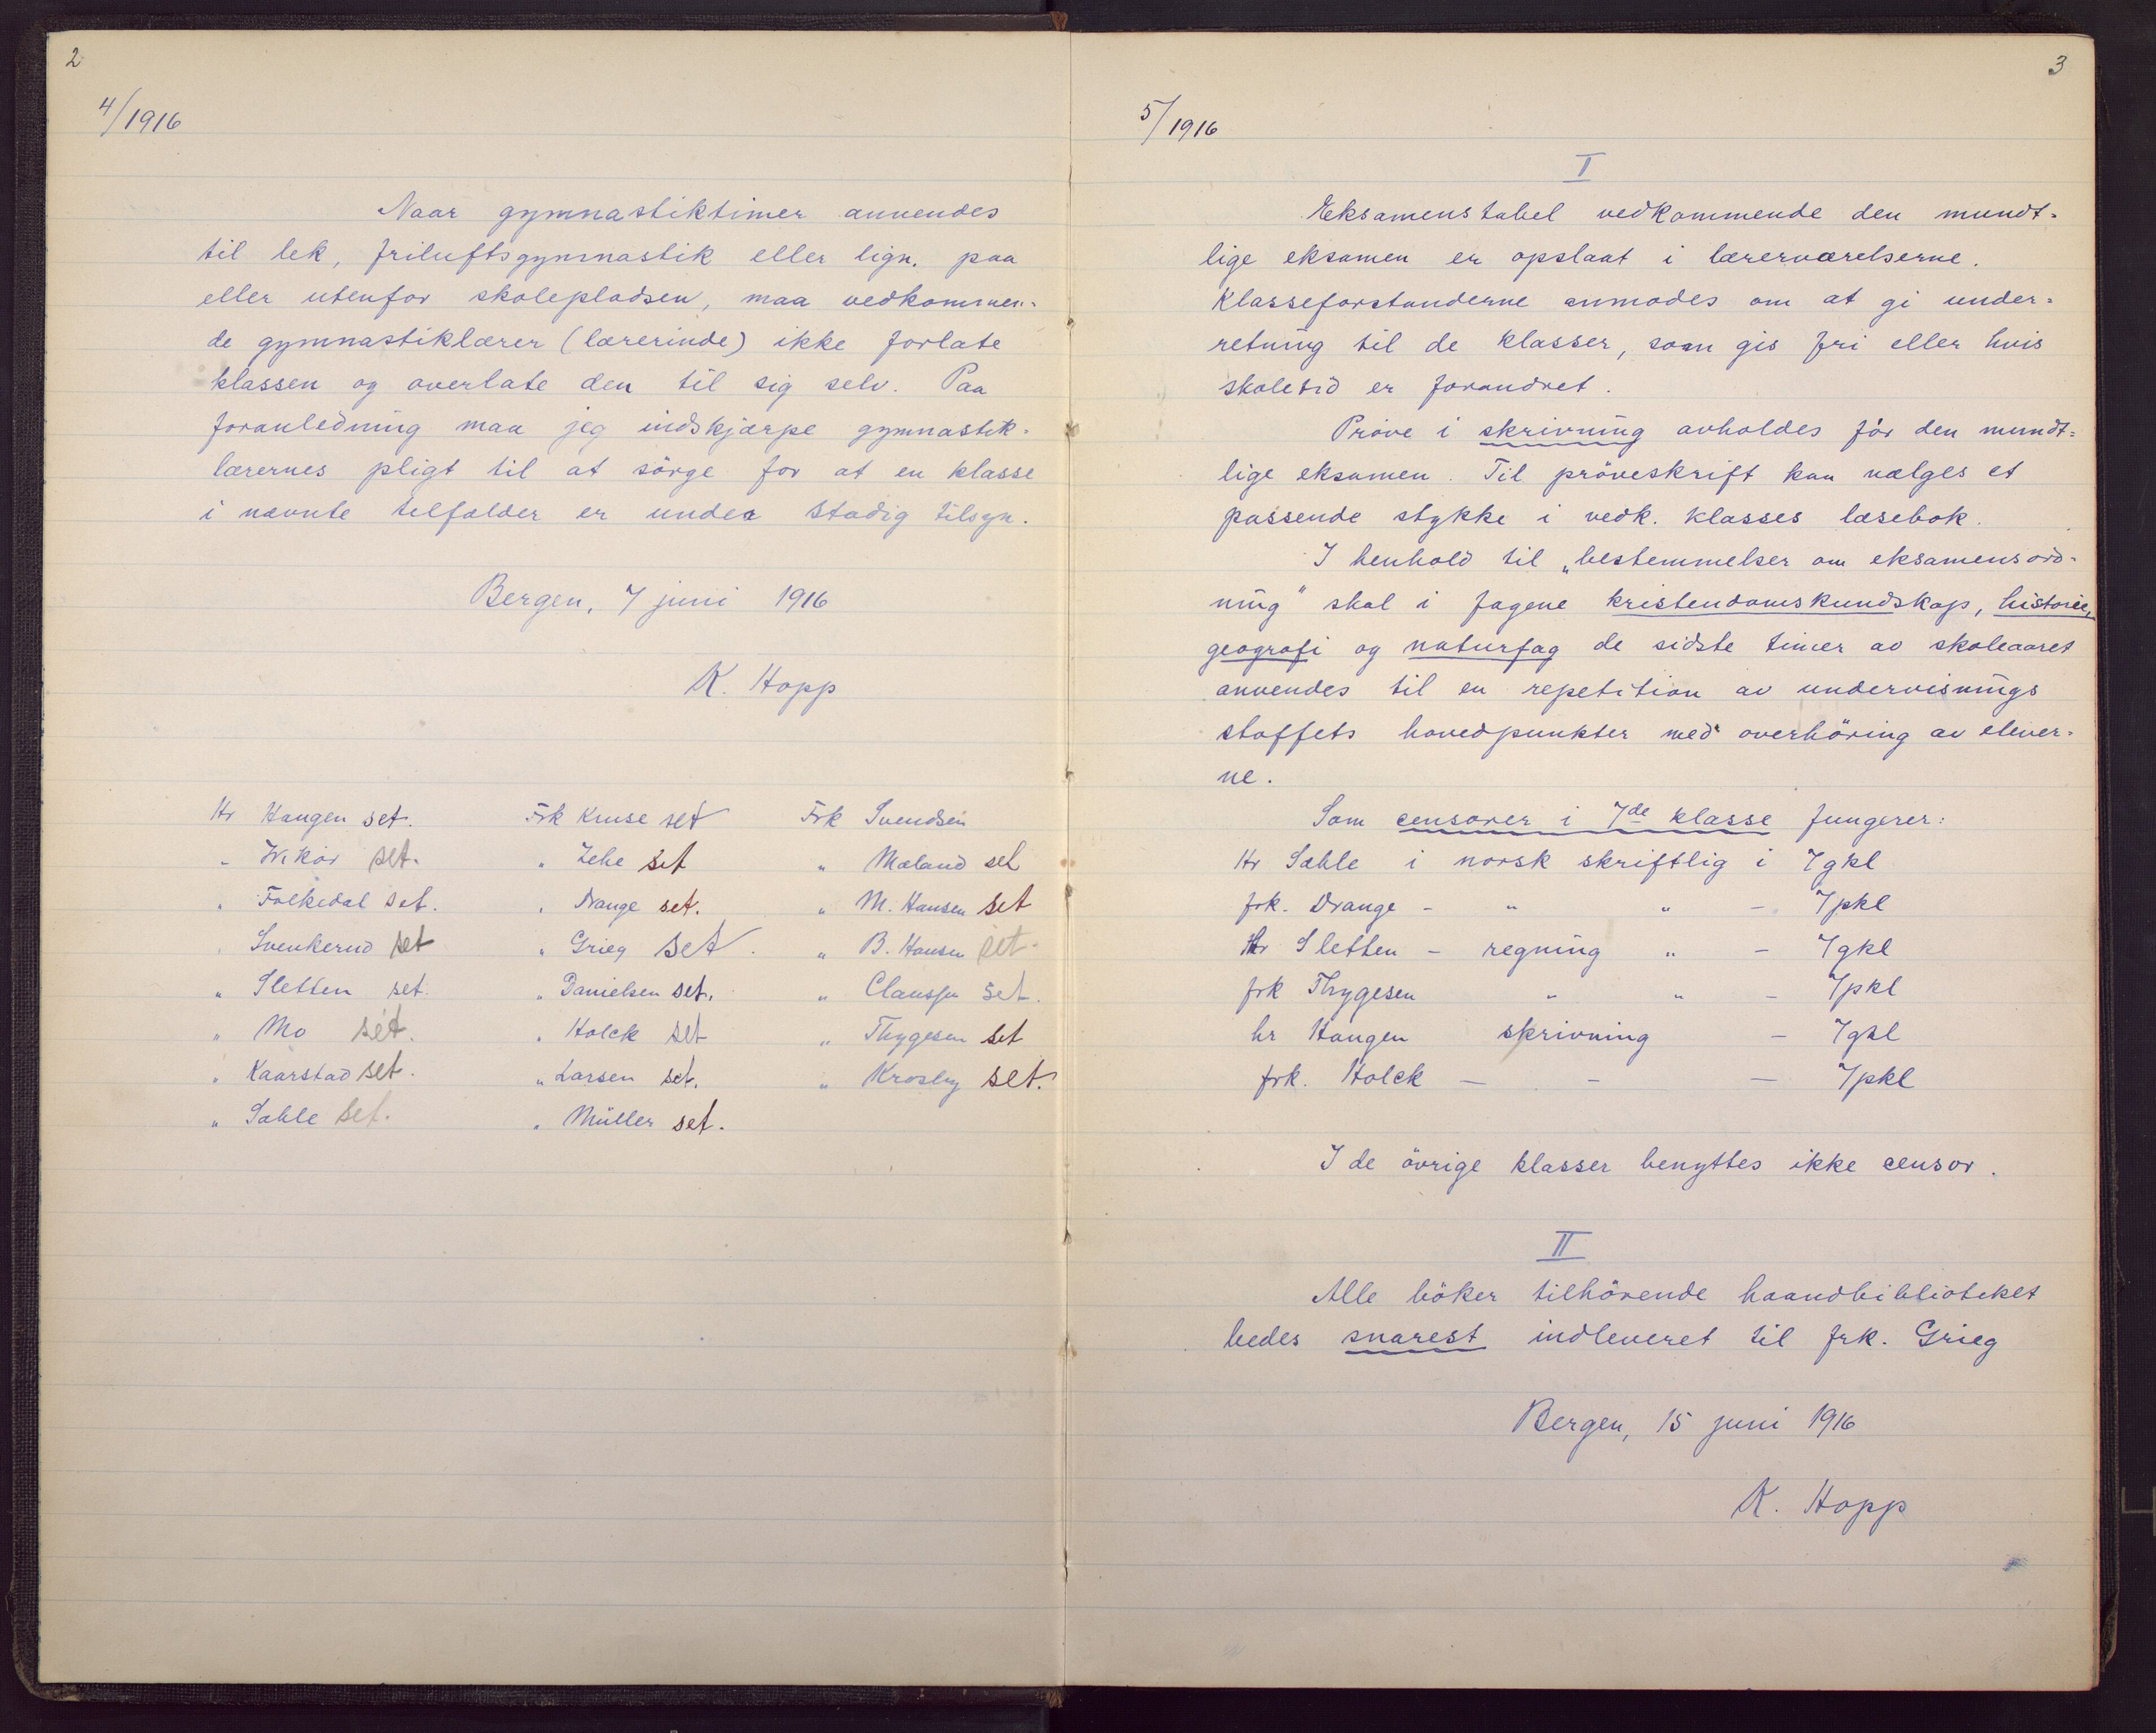 2
4/1916
Naar gymnastiktimer anvendes
til lek, friluftsgymnastik eller lign. paa
eller utenfor skolepladsen, maa vedkommen-
de gymnastiklærer (lærerinde) ikke forlate
klassen og overlate den til sig selv. Paa
foranledning maa jeg indskjærpe gymnastik-
lærernes pligt til at sörge for at en klasse
i nævnte tilfælder er under stadig tilsyn.
Bergen, 7 juni 1916
K. Hopp
Hr Haugen set. Frk Kruse set Frk Svendsen
" Wikör set. " Zehe set " Mæland set
" Folkedal set. " Drange set. " M. Hansen set
" Svenkerud set " Grieg set. " B. Hansen set.
" Sletten set. " Danielsen set. " Claussen set.
" Mo set. " Holck set " Thygesen set
" Kaarstad set. " Larsen set. " Krosby set.
" Sahle set. " Müller set.
3
5/1916
I
Eksamenstabel vedkommende den mundt-
lige eksamen er opslaat i lærerværelserne.
Klasseforstanderne anmodes om at gi under-
retning til de klasser, som gis fri eller hvis
skoletid er forandret.
Pröve i skrivning avholdes för den mundt-
lige eksamen. Til pröveskrift kan vælges et
passende stykke i vedk. klasses læsebok.
I henhold til „bestemmelser om eksamensord-
ning" skal i fagene kristendomskundskap, historie,
geografi og naturfag de sidste timer av skoleaaret
anvendes til en repetition av undervisnings
stoffets hovedpunkter med overhöring av elever-
ne.
Som censorer i 7de klasse fungerer:
Hr Sahle i norsk skriftlig i 7gkl
frk. Drange - " " - 7pkl
Hr Sletten - regning " - 7gkl
frk Thygesen " " - 7pkl
hr Haugen skrivning - 7gkl
frk. Holck - - - 7pkl
I de övrige klasser benyttes ikke censor.
II
Alle böker tilhörende haandbiblioteket
bedes snarest indleveret til frk. Grieg
Bergen, 15 juni 1916
K. Hopp